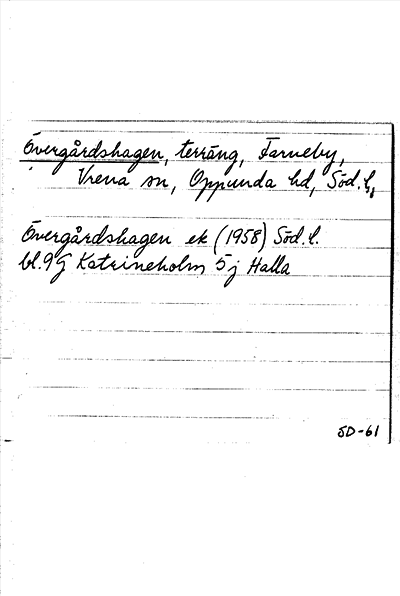 Övergårdshagen, terräng, Farneby,
Vrena sn, Oppunda hd, Söd. l.,
Övergårdshagen ek (1958) Söd. l.
bl. 9 G Katrineholm 5 j Halla
SD-61